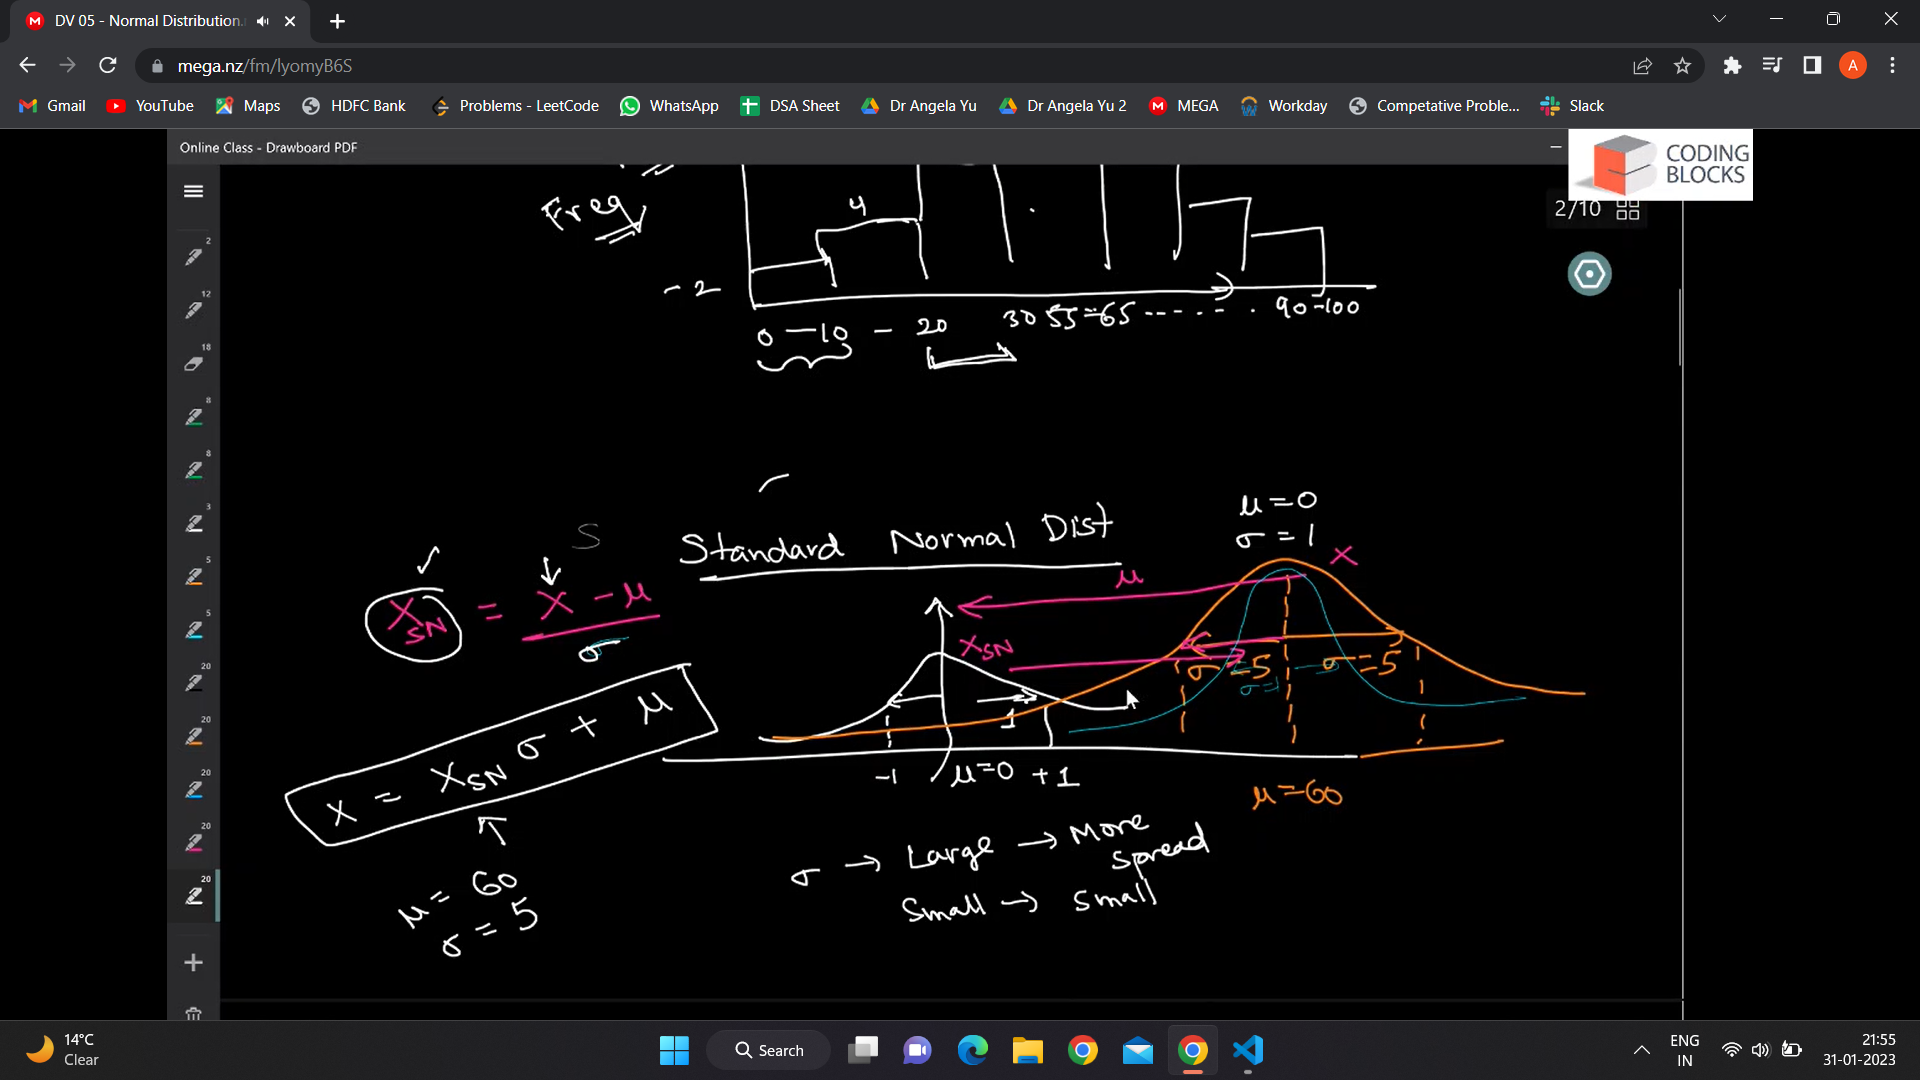 DV 05 - Normal Distribution.
mega.nz/fm/lyomyB6S
A
Gmail YouTube Maps HDFC Bank Problems - LeetCode WhatsApp DSA Sheet Dr Angela Yu Dr Angela Yu 2 MEGA Workday Competative Proble... Slack
Online Class - Drawboard PDF
CODING
BLOCKS
2/10
Freq
4
-2
0 — 10 - 20 30 55-65 ------ . 90-100
μ = 0
σ = 1
S
Standard Normal Dist
X
μ
X SN = X - μ
σ
X SN
σ = 5 σ = 5
σ=1
1
X = X SN σ + μ
-1 μ=0 +1
μ=60
σ → Large → More
Spread
Small → Small
μ = 60
σ = 5
2
12
18
8
8
3
5
5
20
20
20
20
20
14°C
Clear
Search
ENG
IN
21:55
31-01-2023